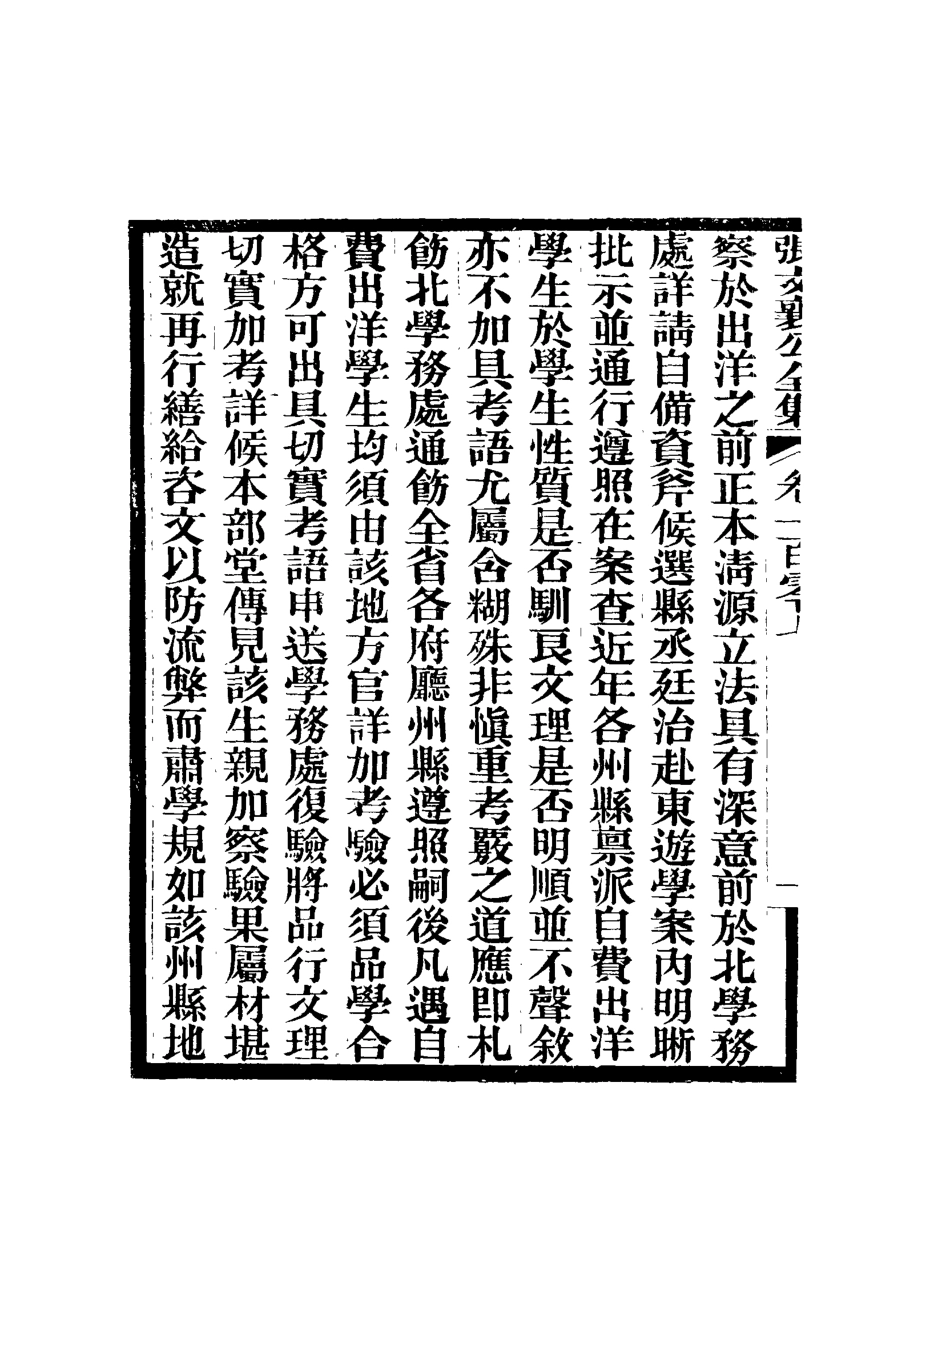 張文襄公全集 卷一百零
察於出洋之前正本淸源立法具有深意前於北學務
處詳請自備資斧候選縣丞廷治赴東遊學案內明晰
批示並通行遵照在案查近年各州縣禀派自費出洋
學生於學生性質是否馴良文理是否明順並不聲敘
亦不加具考語尤屬含糊殊非愼重考覈之道應即札
飭北學務處通飭全省各府廳州縣遵照嗣後凡遇自
費出洋學生均須由該地方官詳加考驗必須品學合
格方可出具切實考語申送學務處復驗將品行文理
切實加考詳候本部堂傳見該生親加察驗果屬材堪
造就再行繕給咨文以防流弊而肅學規如該州縣地